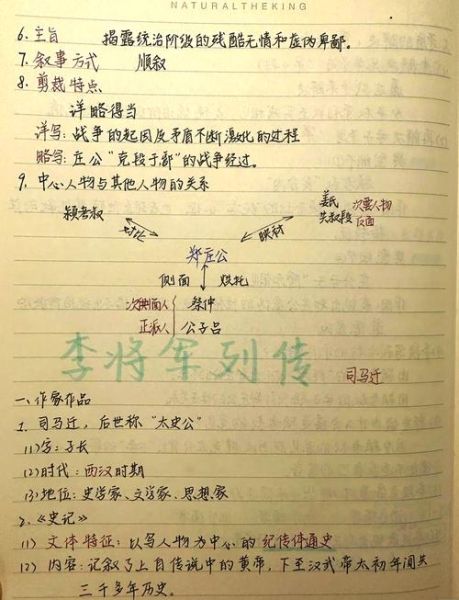 NATURALTHEKING
6. 主旨 揭露统治阶级的残酷无情和虚伪卑鄙。
7. 叙事方式 顺叙
8. 剪裁特点
详略得当
详写: 战争的起因及矛盾不断激化的过程
略写: 庄公“克段于鄢”的战争经过。
9. 中心人物与其他人物的关系
颍考叔
姜氏 次要人物
共叔段 反面
对比
映衬
郑庄公
侧面 烘托
次要人 祭仲
正派人 公子吕
李将军列传
司马迁
一、作家作品
1. 司马迁, 后世称“太史公”
(1)字: 子长
(2)时代: 西汉时期
(3)地位: 史学家、文学家、思想家
2.《史记》
(1) 文体特征: 以写人物为中心的纪传体通史
(2) 内容: 记叙了上自传说中的黄帝, 下至汉武帝太初年间共
三千多年历史。